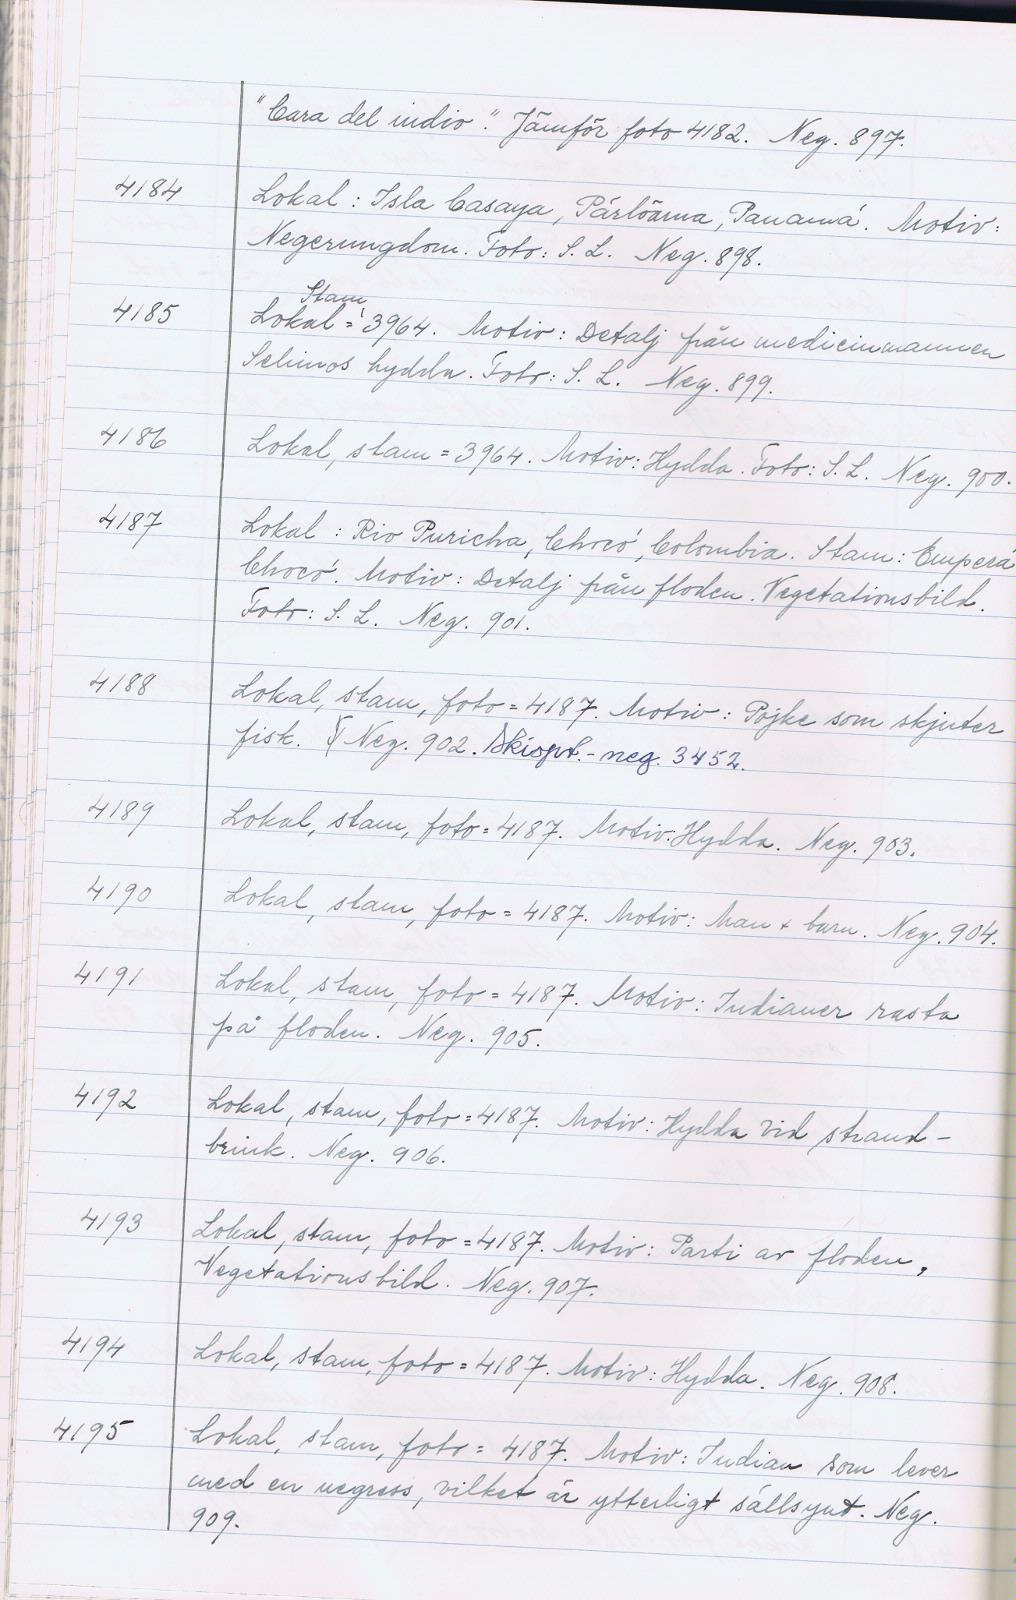 "Cara del indio". Jämför foto 4182. Neg. 897.
4184 Lokal: Isla Casaya, Pärlöarna, Panamá. Motiv:
Negerungdom. Foto: S. L. Neg. 898.
Stam
4185 Lokal = 3964. Motiv: Detalj från medicinmannen
Selimos hydda. Foto: S. L. Neg. 899.
4186 Lokal, stam = 3964. Motiv: Hydda. Foto: S. L. Neg. 900.
4187 Lokal: Rio Puricha, Chocó, Colombia. Stam: Emperá
Chocó. Motiv: Detalj från floden. Vegetationsbild.
Foto: S. L. Neg. 901.
4188 Lokal, stam, foto = 4187. Motiv: Pojke som skjuter
fisk. Neg. 902. Skiopt.-neg. 3452.
4189 Lokal, stam, foto = 4187. Motiv: Hydda. Neg. 903.
4190 Lokal, stam, foto = 4187. Motiv: Man + barn. Neg. 904.
4191 Lokal, stam, foto = 4187. Motiv: Indianer rasta
på floden. Neg. 905.
4192 Lokal, stam, foto = 4187. Motiv: Hydda vid strand-
brink. Neg. 906.
4193 Lokal, stam, foto = 4187. Motiv: Parti av floden,
Vegetationsbild. Neg. 907.
4194 Lokal, stam, foto = 4187. Motiv: Hydda. Neg. 908.
4195 Lokal, stam, foto = 4187. Motiv: Indian som lever
med en negress, vilket är ytterligt sällsynt. Neg.
909.